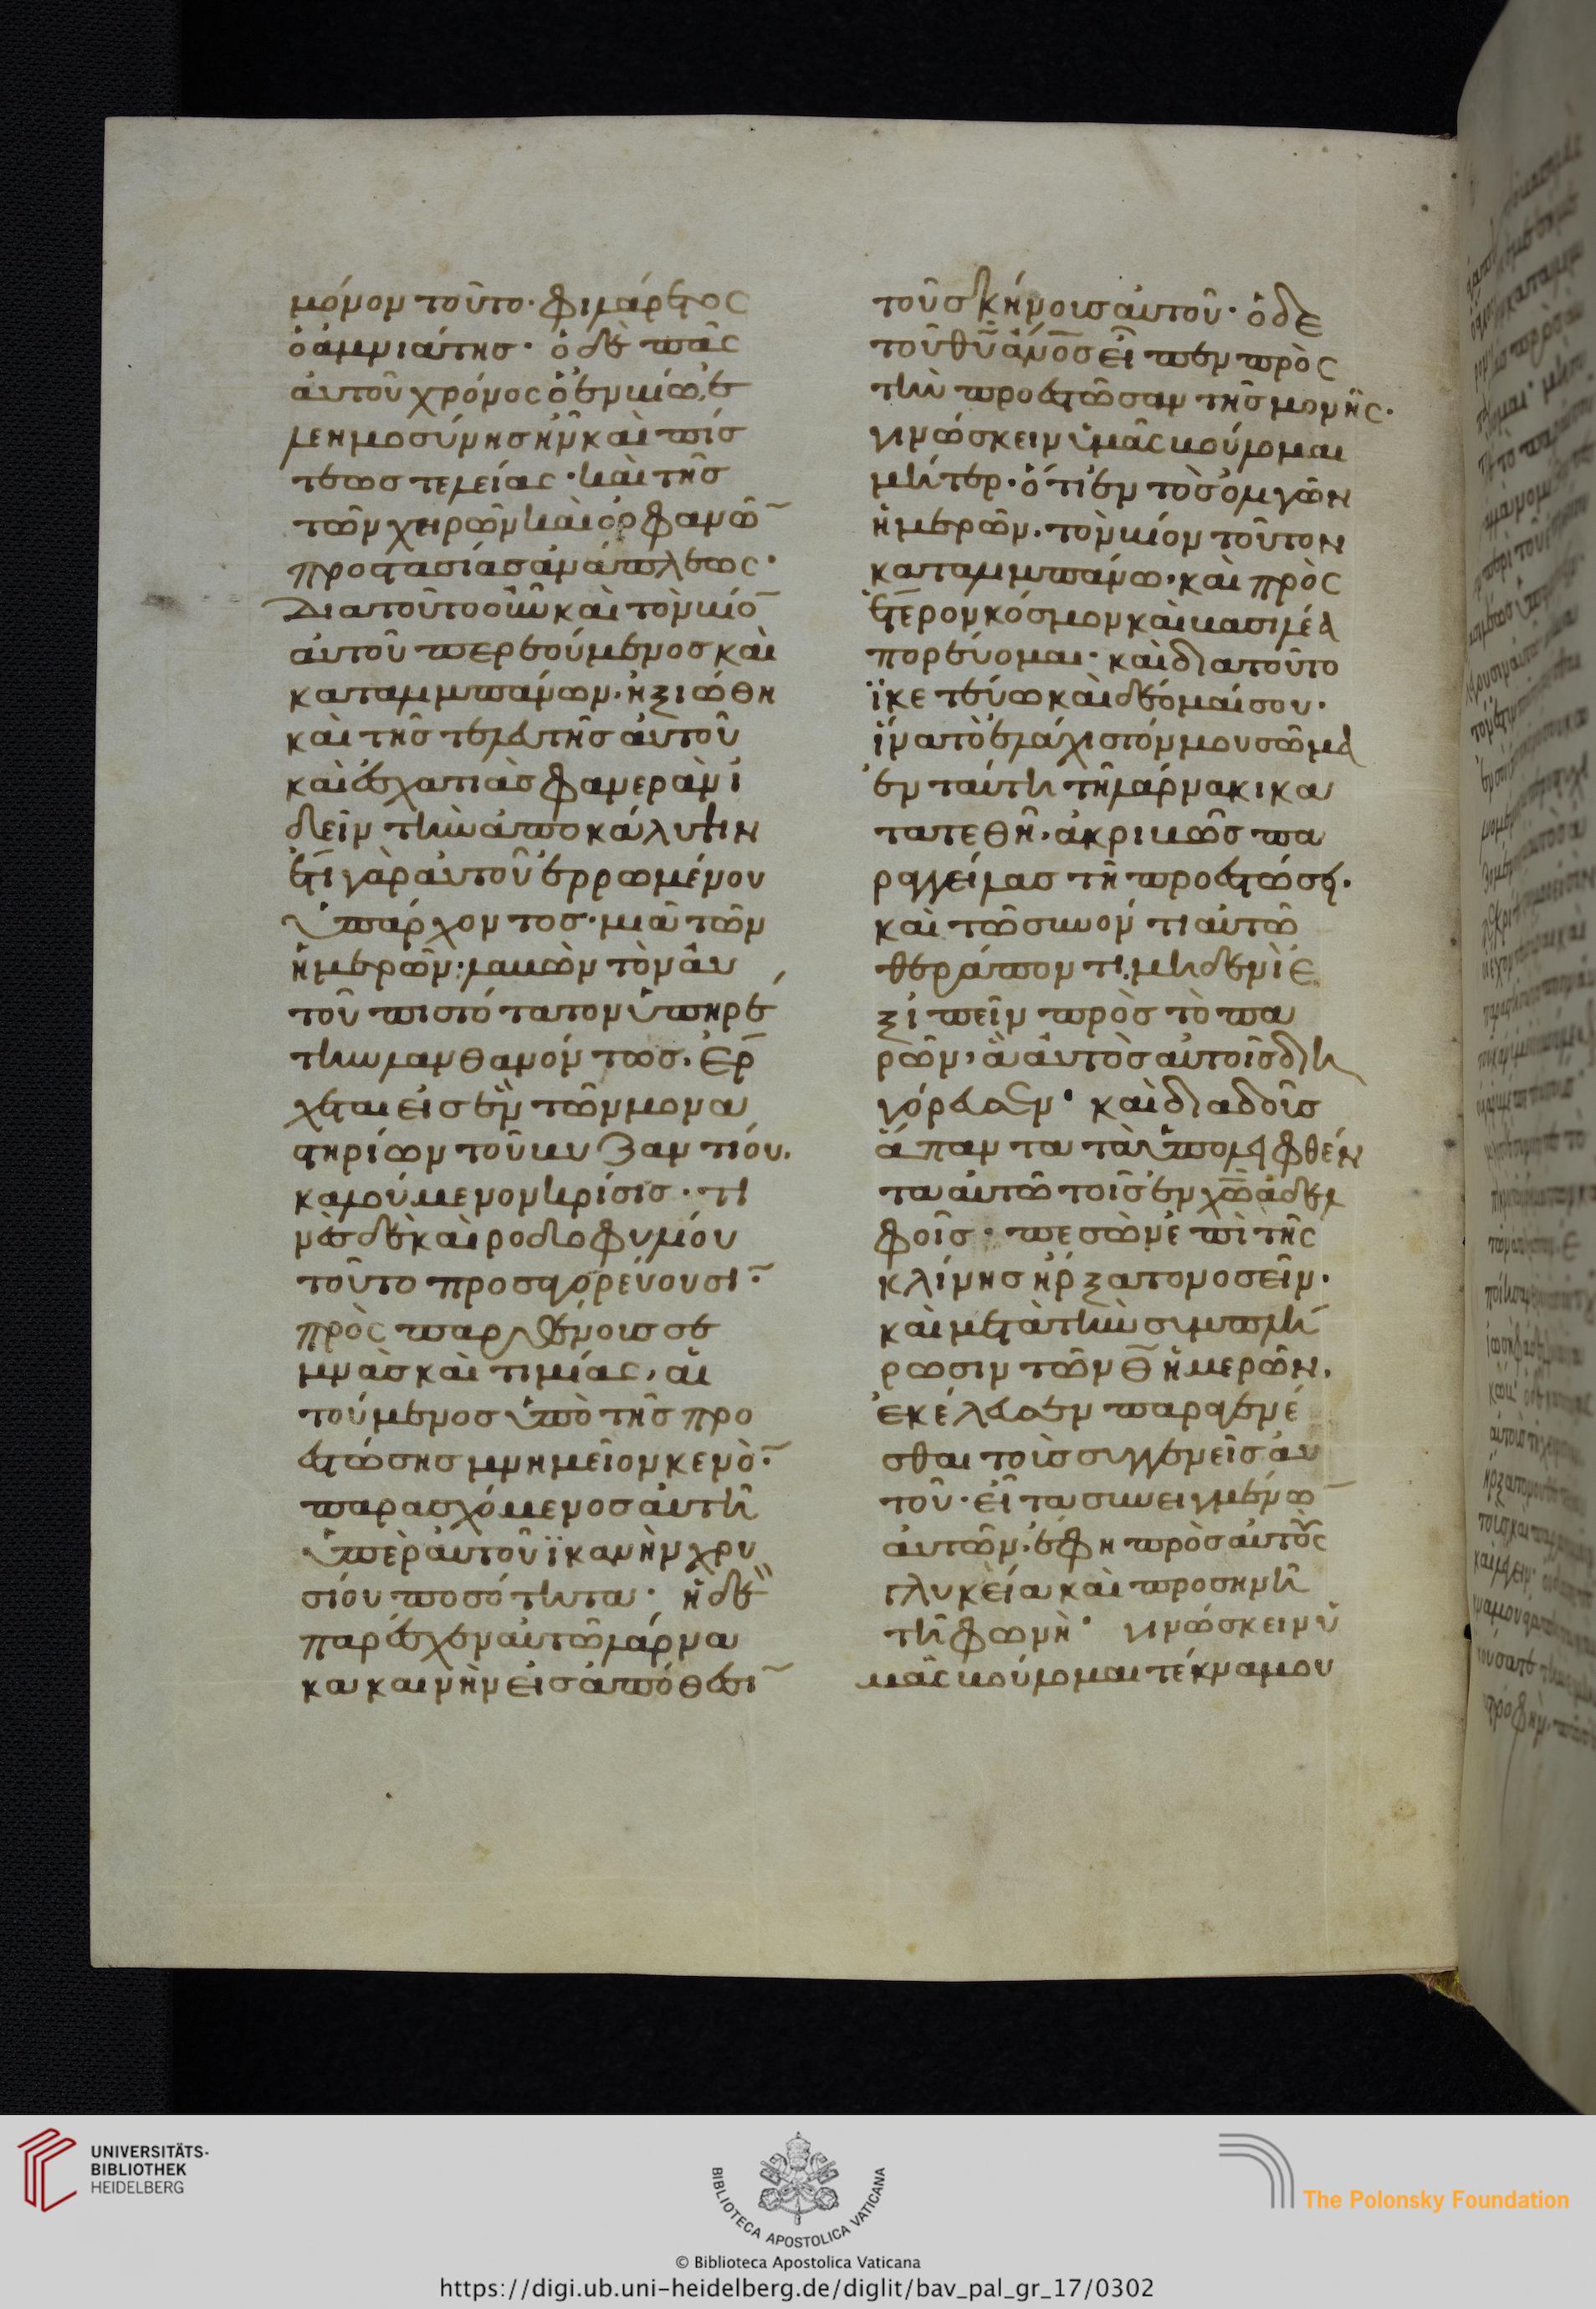 μόνον τοῦτο· φιλάρετος
ὁ ἀμνιάτης· ὁ δὲ πᾶς
αὐτοῦ χρόνος ὁ ἐν βίῳ, ἐ
λεημοσύνης ἦν καὶ πίσ
τεως τελείας· καὶ τῆς
τῶν χηρῶν καὶ ὀρφανῶ̄
προστασίας ἀνάπλεως·
Διατοῦτο οὖν καὶ τὸν βίο̄
αὐτοῦ περσούμενος καὶ
καταλιμπάνων· ἠξιώθη
καὶ τῆς τελευτῆς αὐτοῦ
καὶ ἐσχατιὰς φανερὰν ἰ
δεῖν τὴν ἀποκάλυψιν
ἔτι γὰρ αὐτοῦ ἐρρωμένου
ὑπάρχοντος· μιᾶ τῶν
ἡμερῶν· λαβὼν τὸν αὐ
τοῦ πιστότατον ὑπηρέ
την λανθανόντως· ἔρ
χεται εἰς ἓν τῶν μονα
στηρίων τοῦ βυζαντίου·
καλούμενον κρίσις· τι
νὲς δὲ καὶ ροδοφυλίου
τοῦτο προσαγορεύουσῑ·
πρὸς παρθένοις σε
μνὰς καὶ τιμίας, αἰ
τούμενος ὑπὸ τῆς προ
εστώσης μνημεῖον κενὸ̄·
παρασχόμενος αὐτῇ
ὑπὲρ αὐτοῦ ϊκανὴν χρυ
σίου ποσότητα· ἡ δὲ
παρέσχεν αὐτῷ λάρνα
κα καινὴν εἰς ἀπόθεσῑ
τοῦ σκήνοις αὐτοῦ· ὁ δὲ
τοῦ θῡ ἄν̄ο̄ς εἶπεν πρὸς
τὴν προεστῶσαν τῆς μονῆς·
γινώσκειν ὑμᾶς βούλομαι
μῆτερ· ὅτι ἐν τὸς ὀλιγῶν
ἡμερῶν· τὸν βίον τοῦτον
καταλιμπάνω, καὶ πρὸς
ἕτερον κόσμον καὶ βασιλέα
πορεύομαι· καὶ διατοῦτο
ϊκετεύω καὶ δέομαί σου·
ἵνα τὸ ἐλάχιστόν μου σῶμα
ἐν ταύτῃ τῇ λάρνακι κα
τατεθῇ· ἀκριβῶς πα
ραγγείλας τῇ προεστώσῃ·
καὶ τῶ συνόντι αὐτῶ
θεράποντι. μηδενὶ ἐ
ξιπεῖν πρὸς τὸ πα
ρῶν, ἃ αὐτὸς αὐτοῖς διη
γόρευσεν· καὶ διαδοῖς
ἅπαντα τὰ ὑπολειφθέν
τα αὐτῶ τοῖς ἐν χ̄ω̄ ἀδελ
φοῖς· πεσὼν ἐπὶ τῆς
κλίνης ἤρξατο νοσεῖν·
καὶ μετὰ τὴν συμπλή
ρωσιν τῶν θ̄ ἡμερῶν·
ἐκέλευσεν παραγενέ
σθαι τοὺς συγγενεῖς αὐ
τοῦ· εἶτα συνειγμένω̄
αὐτῶν· ἔφη πρὸς αὐτοὺς
γλυκεία καὶ προσηνῇ
τῇ φωνὴ· γινώσκειν ὑ
μᾶς βούλομαι τέκνα μου
UNIVERSITÄTS-
BIBLIOTHEK
HEIDELBERG
BIBLIOTECA APOSTOLICA VATICANA
The Polonsky Foundation
© Biblioteca Apostolica Vaticana
https://digi.ub.uni-heidelberg.de/diglit/bav_pal_gr_17/0302